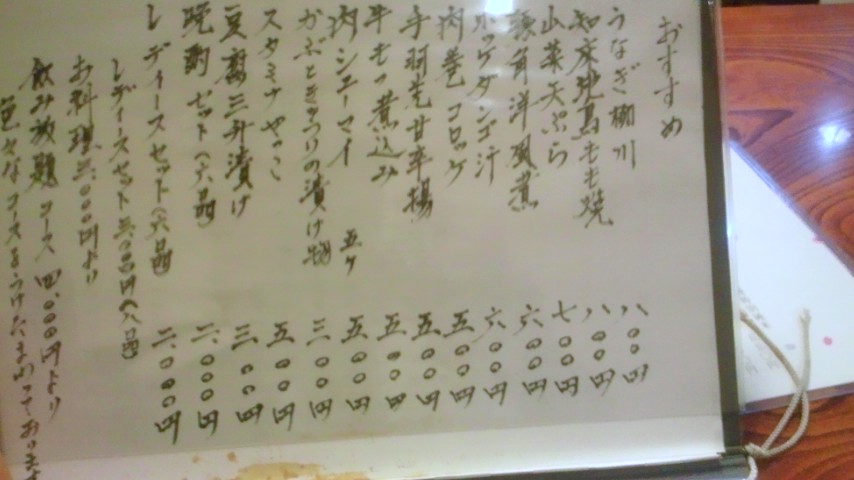 おすすめ
うなぎ柳川 八〇〇円
知床地鳥もも焼 八〇〇円
山菜天ぷら 七〇〇円
豚角洋風煮 六〇〇円
ホッケダンゴ汁 六〇〇円
肉巻コロッケ 五〇〇円
手羽先甘辛揚 五〇〇円
牛もつ煮込み 五〇〇円
肉シューマイ 五ケ 五〇〇円
かぶときゅうりの漬け物 三〇〇円
スタミナやっこ 五〇〇円
豆腐三升漬け 三〇〇円
晩酌セット(六品) 二、〇〇〇円
レディースセット(六品) 二、〇〇〇円
レディースセット 三、〇〇〇円(八品)
お料理 三、〇〇〇円より
飲み放題コース 四、〇〇〇円より
色々なコースをうけたまわっております